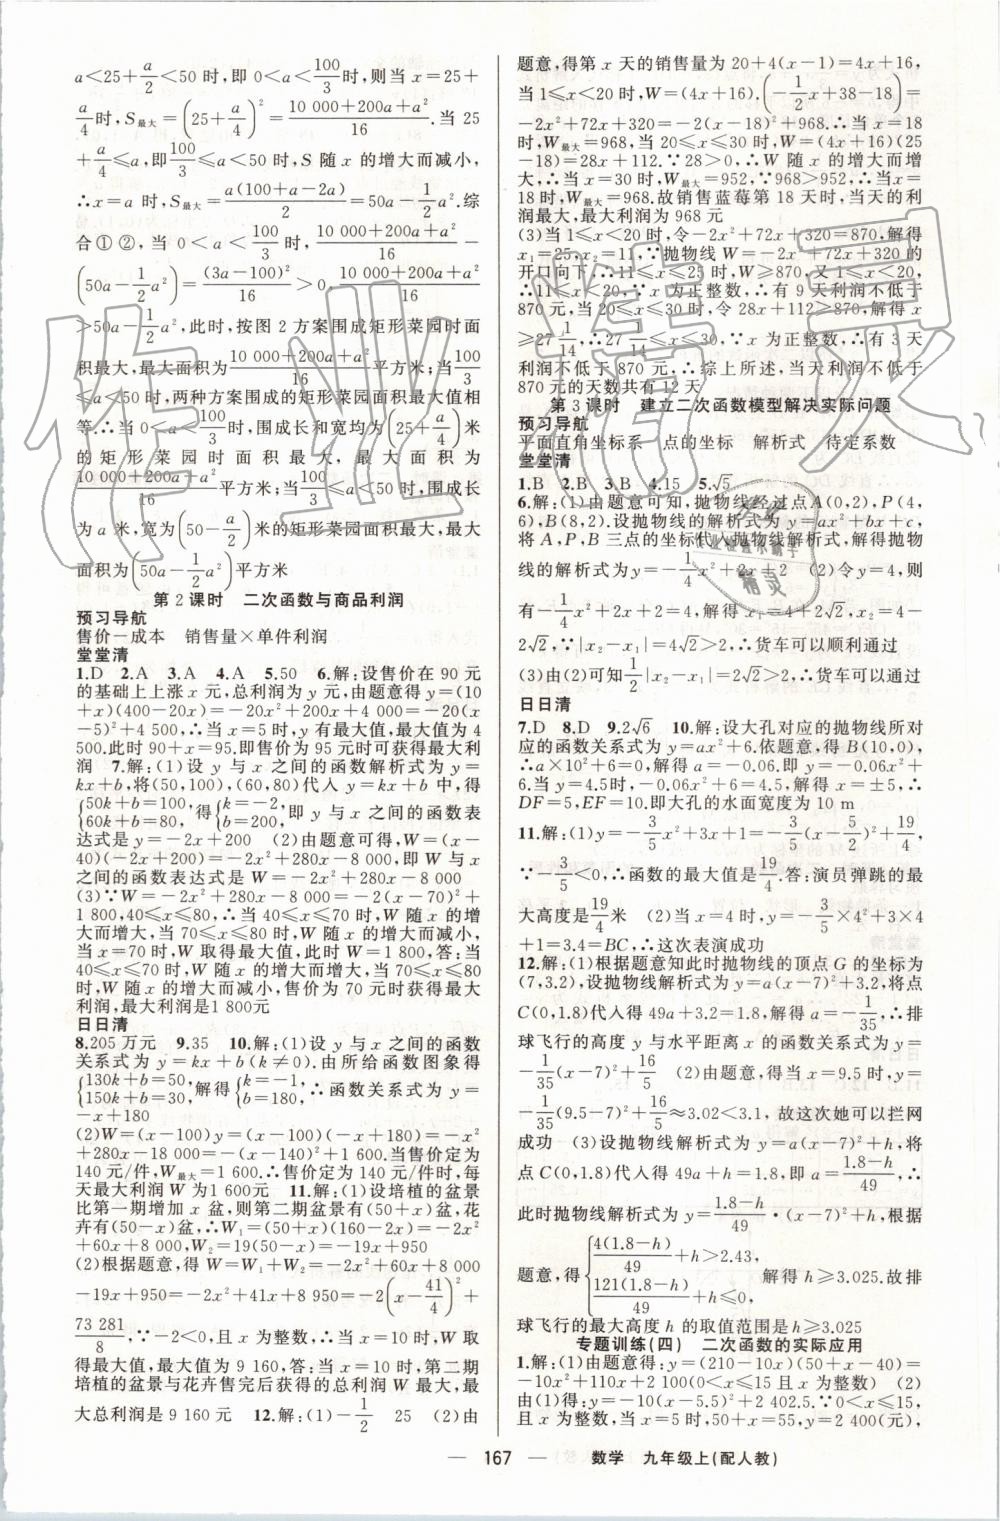 a<25+a/2<50 时,即 0<a<100/3 时,则当 x=25+
a/4时,S最大=(25+a/4)²=(10 000+200a+a²)/16.当 25
+a/4≤a,即100/3≤a<50 时,S 随 x 的增大而减小,
∴x=a 时,S最大=a(100+a-2a)/2=50a-1/2a².综
合①②,当 0<a<100/3时,(10 000+200a+a²)/16-
(50a-1/2a²)=(3a-100)²/16>0,(10 000+200a+a²)/16
>50a-1/2a²,此时,按图 2 方案围成矩形菜园时面
积最大,最大面积为(10 000+200a+a²)/16平方米;当100/3
≤a<50时,两种方案围成的矩形菜园面积最大值相
等.∴当 0<a<100/3时,围成长和宽均为(25+a/4)米
的矩形菜园时面积最大,最大面积为
(10 000+200a+a²)/16平方米;当100/3≤a<50时,围成长
为 a 米,宽为(50-a/2)米的矩形菜园面积最大,最大
面积为(50a-1/2a²)平方米
第 2 课时 二次函数与商品利润
预习导航
售价-成本 销售量×单件利润
堂堂清
1.D 2.A 3.A 4.A 5.50 6.解:设售价在 90 元
的基础上上涨 x 元,总利润为 y 元,由题意得 y=(10
+x)(400-20x)=-20x²+200x+4 000=-20(x
-5)²+4 500,∴当 x=5 时,y 有最大值,最大值为 4
500.此时 90+x=95.即售价为 95 元时可获得最大利
润 7.解:(1)设 y 与 x 之间的函数解析式为 y=
kx+b,将(50,100),(60,80)代入 y=kx+b 中,得
{50k+b=100, 60k+b=80, 得{k=-2, b=200,即 y 与 x 之间的函数表
达式是 y=-2x+200 (2)由题意可得,W=(x-
40)(-2x+200)=-2x²+280x-8 000,即 W 与 x
之间的函数表达式是 W=-2x²+280x-8 000
(3)∵W=-2x²+280x-8 000=-2(x-70)²+
1 800,40≤x≤80,∴当 40≤x≤70 时,W 随 x 的增
大而增大,当 70≤x≤80 时,W 随 x 的增大而减小,
当 x=70 时,W 取得最大值,此时 W=1 800,答:当
40≤x≤70 时,W 随 x 的增大而增大,当 70≤x≤80
时,W 随 x 的增大而减小,售价为 70 元时获得最大
利润,最大利润是1 800元
日日清
8.205 万元 9.35 10.解:(1)设 y 与 x 之间的函数
关系式为 y=kx+b(k≠0).由所给函数图象得
{130k+b=50, 150k+b=30,解得{k=-1, b=180,∴函数关系式为 y=
-x+180
(2)W=(x-100)y=(x-100)(-x+180)=-x²
+280x-18 000=-(x-140)²+1 600.当售价定为
140 元/件,W最大=1 600.∴售价定为 140 元/件时,每
天最大利润 W 为1 600元 11.解:(1)设培植的盆景
比第一期增加 x 盆,则第二期盆景有(50+x)盆,花
卉有(50-x)盆,∴W₁=(50+x)(160-2x)=-2x²
+60x+8 000,W₂=19(50-x)=-19x+950
(2)根据题意,得 W=W₁+W₂=-2x²+60x+8 000
-19x+950=-2x²+41x+8 950=-2(x-41/4)²+
73 281/8,∵-2<0,且 x 为整数,∴当 x=10 时,W 取
得最大值,最大值为 9 160,答:当 x=10 时,第二期
培植的盆景与花卉售完后获得的总利润 W 最大,最
大总利润是 9 160 元 12.解:(1)-1/2 25 (2)由
题意,得第 x 天的销售量为 20+4(x-1)=4x+16,
当 1≤x<20 时,W=(4x+16).(-1/2x+38-18)=
-2x²+72x+320=-2(x-18)²+968.∴当 x=18
时,W最大=968,当 20≤x≤30 时,W=(4x+16)(25
-18)=28x+112.∵28>0,∴W 随 x 的增大而增
大,∴当 x=30 时,W最大=952,∵968>952,∴当x=
18时,W最大=968.故销售蓝莓第 18 天时,当天的利
润最大,最大利润为 968 元
(3)当 1≤x<20 时,令-2x²+72x+320=870.解得
x₁=25,x₂=11,∵抛物线 W=-2x²+72x+320 的
开口向下,∴11≤x≤25 时,W≥870,又 1≤x<20,
∴11≤x<20,∵x 为正整数,∴有 9 天利润不低于
870元,当 20≤x≤30 时,令 28x+112≥870,解得 x
≥27 1/14,∴27 1/14≤x≤30,∵x 为正整数,∴有 3 天
利润不低于 870 元,∴综上所述,当天利润不低于
870 元的天数共有 12 天
第 3 课时 建立二次函数模型解决实际问题
预习导航
平面直角坐标系 点的坐标 解析式 待定系数
堂堂清
1.B 2.B 3.B 4.15 5.√5
6.解:(1)由题意可知,抛物线经过点 A(0,2),P(4,
6),B(8,2).设抛物线的解析式为 y=ax²+bx+c,
将 A,P,B 三点的坐标代入抛物线解析式,解得抛物
线的解析式为 y=-1/4x²+2x+2 (2)令 y=4,则
有-1/4x²+2x+2=4,解得 x₁=4+2√2,x₂=4-
2√2,∵|x₂-x₁|=4√2>2,∴货车可以顺利通过
(3)由(2)可知1/2|x₂-x₁|=2√2>2,∴货车可以通过
日日清
7.D 8.D 9.2√6 10.解:设大孔对应的抛物线所对
应的函数关系式为 y=ax²+6.依题意,得 B(10,0),
∴a×10²+6=0,解得 a=-0.06.即 y=-0.06x²+
6.当 y=4.5时,-0.06x²+6=4.5,解得 x=±5,∴
DF=5,EF=10.即大孔的水面宽度为 10 m
11.解:(1)y=-3/5x²+3x+1=-3/5(x-5/2)²+19/4,
∵-3/5<0,∴函数的最大值是19/4.答:演员弹跳的最
大高度是19/4米 (2)当 x=4 时,y=-3/5×4²+3×4
+1=3.4=BC,∴这次表演成功
12.解:(1)根据题意知此时抛物线的顶点 G 的坐标为
(7,3.2),设抛物线解析式为 y=a(x-7)²+3.2,将点
C(0,1.8)代入得 49a+3.2=1.8,解得 a=-1/35,∴排
球飞行的高度 y 与水平距离 x 的函数关系式为 y=
-1/35(x-7)²+16/5 (2)由题意得当 x=9.5 时,y=
-1/35(9.5-7)²+16/5≈3.02<3.1,故这次她可以拦网
成功 (3)设抛物线解析式为 y=a(x-7)²+h,将
点 C(0,1.8)代入得 49a+h=1.8,即 a=(1.8-h)/49,∴
此时抛物线解析式为 y=(1.8-h)/49·(x-7)²+h,根据
题意,得{4(1.8-h)/49+h>2.43, 121(1.8-h)/49+h≤0, 解得 h≥3.025.故排
球飞行的最大高度 h 的取值范围是 h≥3.025
专题训练(四) 二次函数的实际应用
1.解:(1)由题意得:y=(210-10x)(50+x-40)=
-10x²+110x+2 100(0<x≤15 且 x 为整数) (2)
由(1)得:y=-10(x-5.5)²+2 402.5,∵0<x≤15,
且 x 为整数,当 x=5 时,50+x=55,y=2 400(元),
— 167 — 数学 九年级上(配人教)
作业精灵